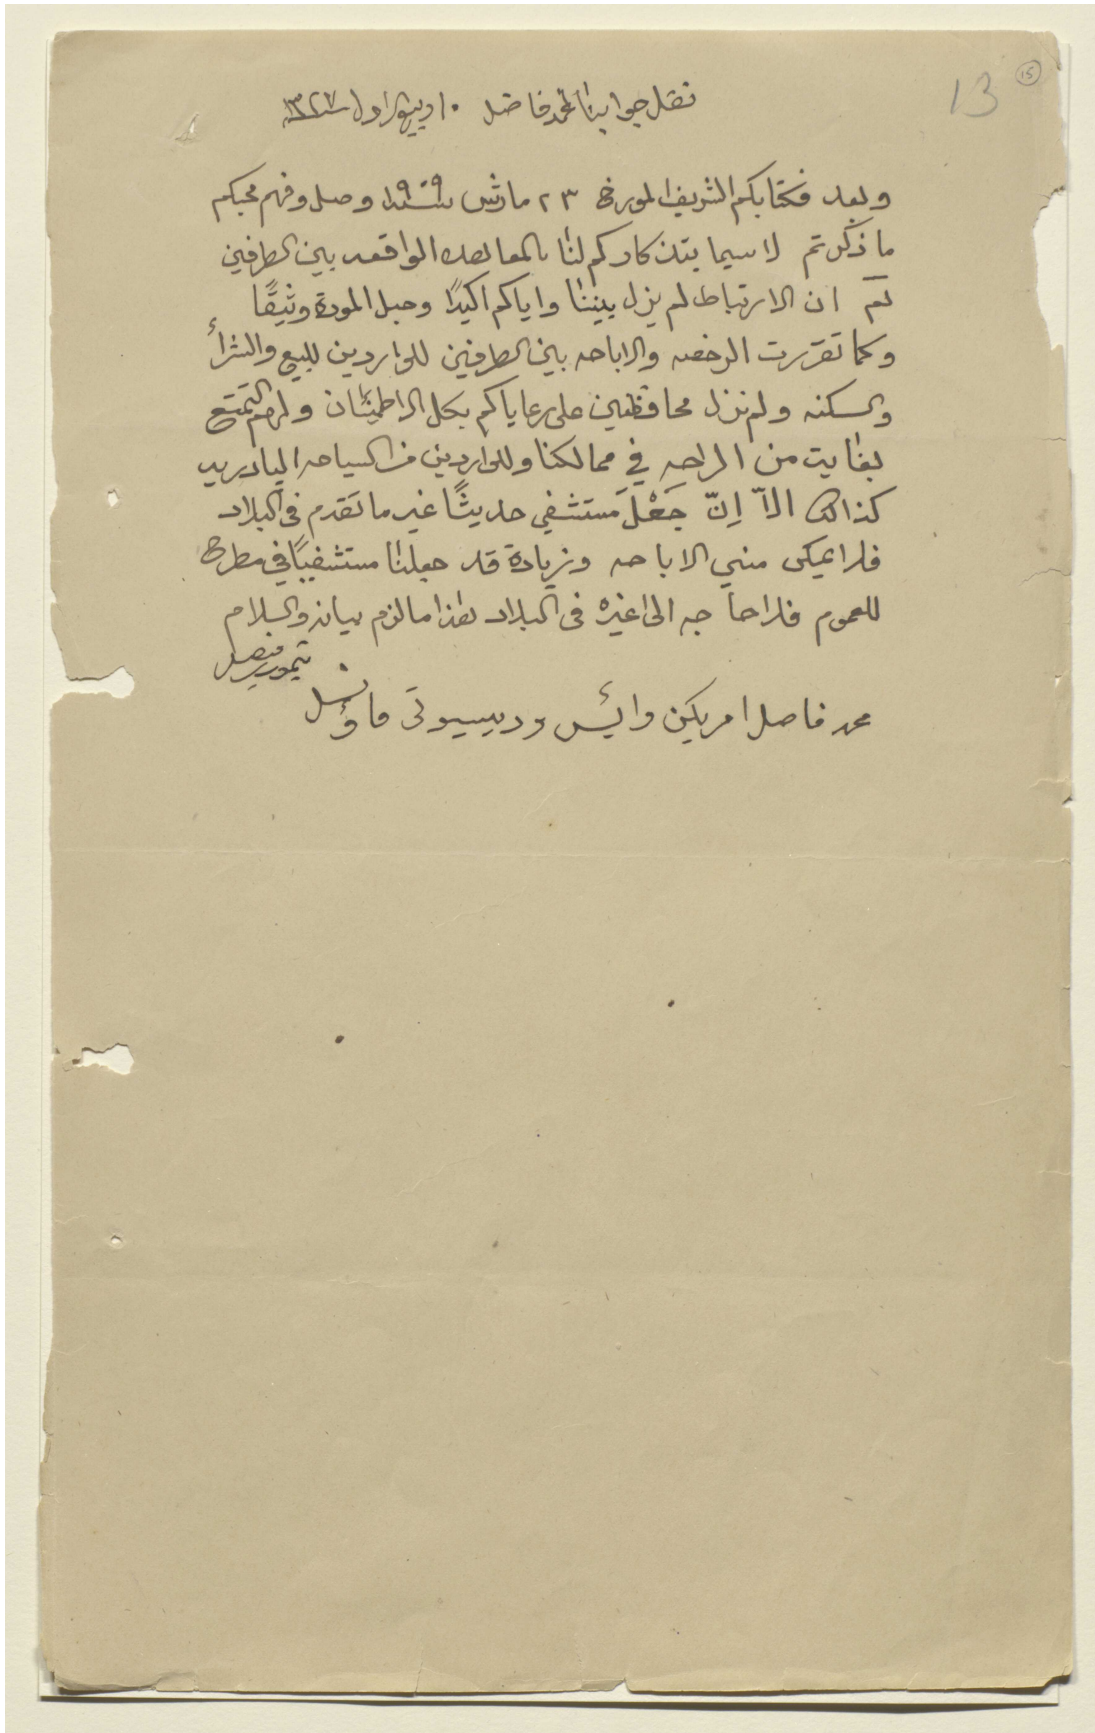 13
15
نقل جوابنا لمحمد فاضل ١٠ ربيع الاول ١٣٢٧
وبعد فكتابكم الشريف المورخ ٢٣ مارش سنة ١٩٠٩ وصل وفهم محبكم
ما ذكرتم لا سيما بتذكاركم لنا بالمعاهده الواقعه بين الطرفين
نعم ان الارتباط لم يزل بيننا واياكم اكيدًا وحبل المودة وثيقًا
وكما تقررت الرخصه والاباحه بين الطرفين للواردين للبيع والشرأ
والسكنه ولم نزل محافظين على رعاياكم بكل الاطمئنان ولهم التمتع
بغايت من الراحه في ممالكنا وللواردين من السياحه البادريه
كذالك الاّ اِنّ جَعْلَ مستشفي حديثًا غير ما تقدم فى البلاد
فلا يمكن مني الاباحه وزيادة قد جعلنا مستشفيًا في مطرح
للعموم فلا حاجه الى غيره فى البلاد هذا ما لزم بيانه والسلام
تيمور فيصل
محمد فاضل امريكن وائيس ودبيوتى قاؤنسل